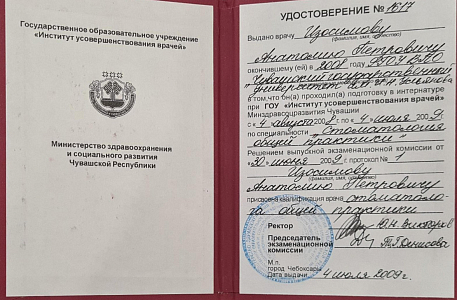 Государственное образовательное учреждение
«Институт усовершенствования врачей»
Министерство здравоохранения
и социального развития
Чувашской Республики
УДОСТОВЕРЕНИЕ № 1617
Выдано врачу Изосимову
(фамилия, имя, отчество)
Анатолию Петровичу
окончившему (ей) в 2008 году ФГОУ ВПО
"Чувашский государственный
университет им. И.Н. Ульянова"
в том,что он(а) проходил(а) подготовку в интернатуре
при ГОУ «Институт усовершенствования врачей»
Минздравсоцразвития Чувашии
с «4 августа 2008 г. по «4 июля 2009 г.
по специальности "Стоматология
общей практики"
Решением выпускной экзаменационной комиссии от
«30» июня 2009 г. протокол № 1
Изосимову
(фамилия, имя, отчество)
Анатолию Петровичу
присвоена квалификация врача стоматоло-
га общей практики
Ректор
Председатель
экзаменационной
комиссии Т.Г.Денисова
М.п.
город Чебоксары 4 июля 2009г.